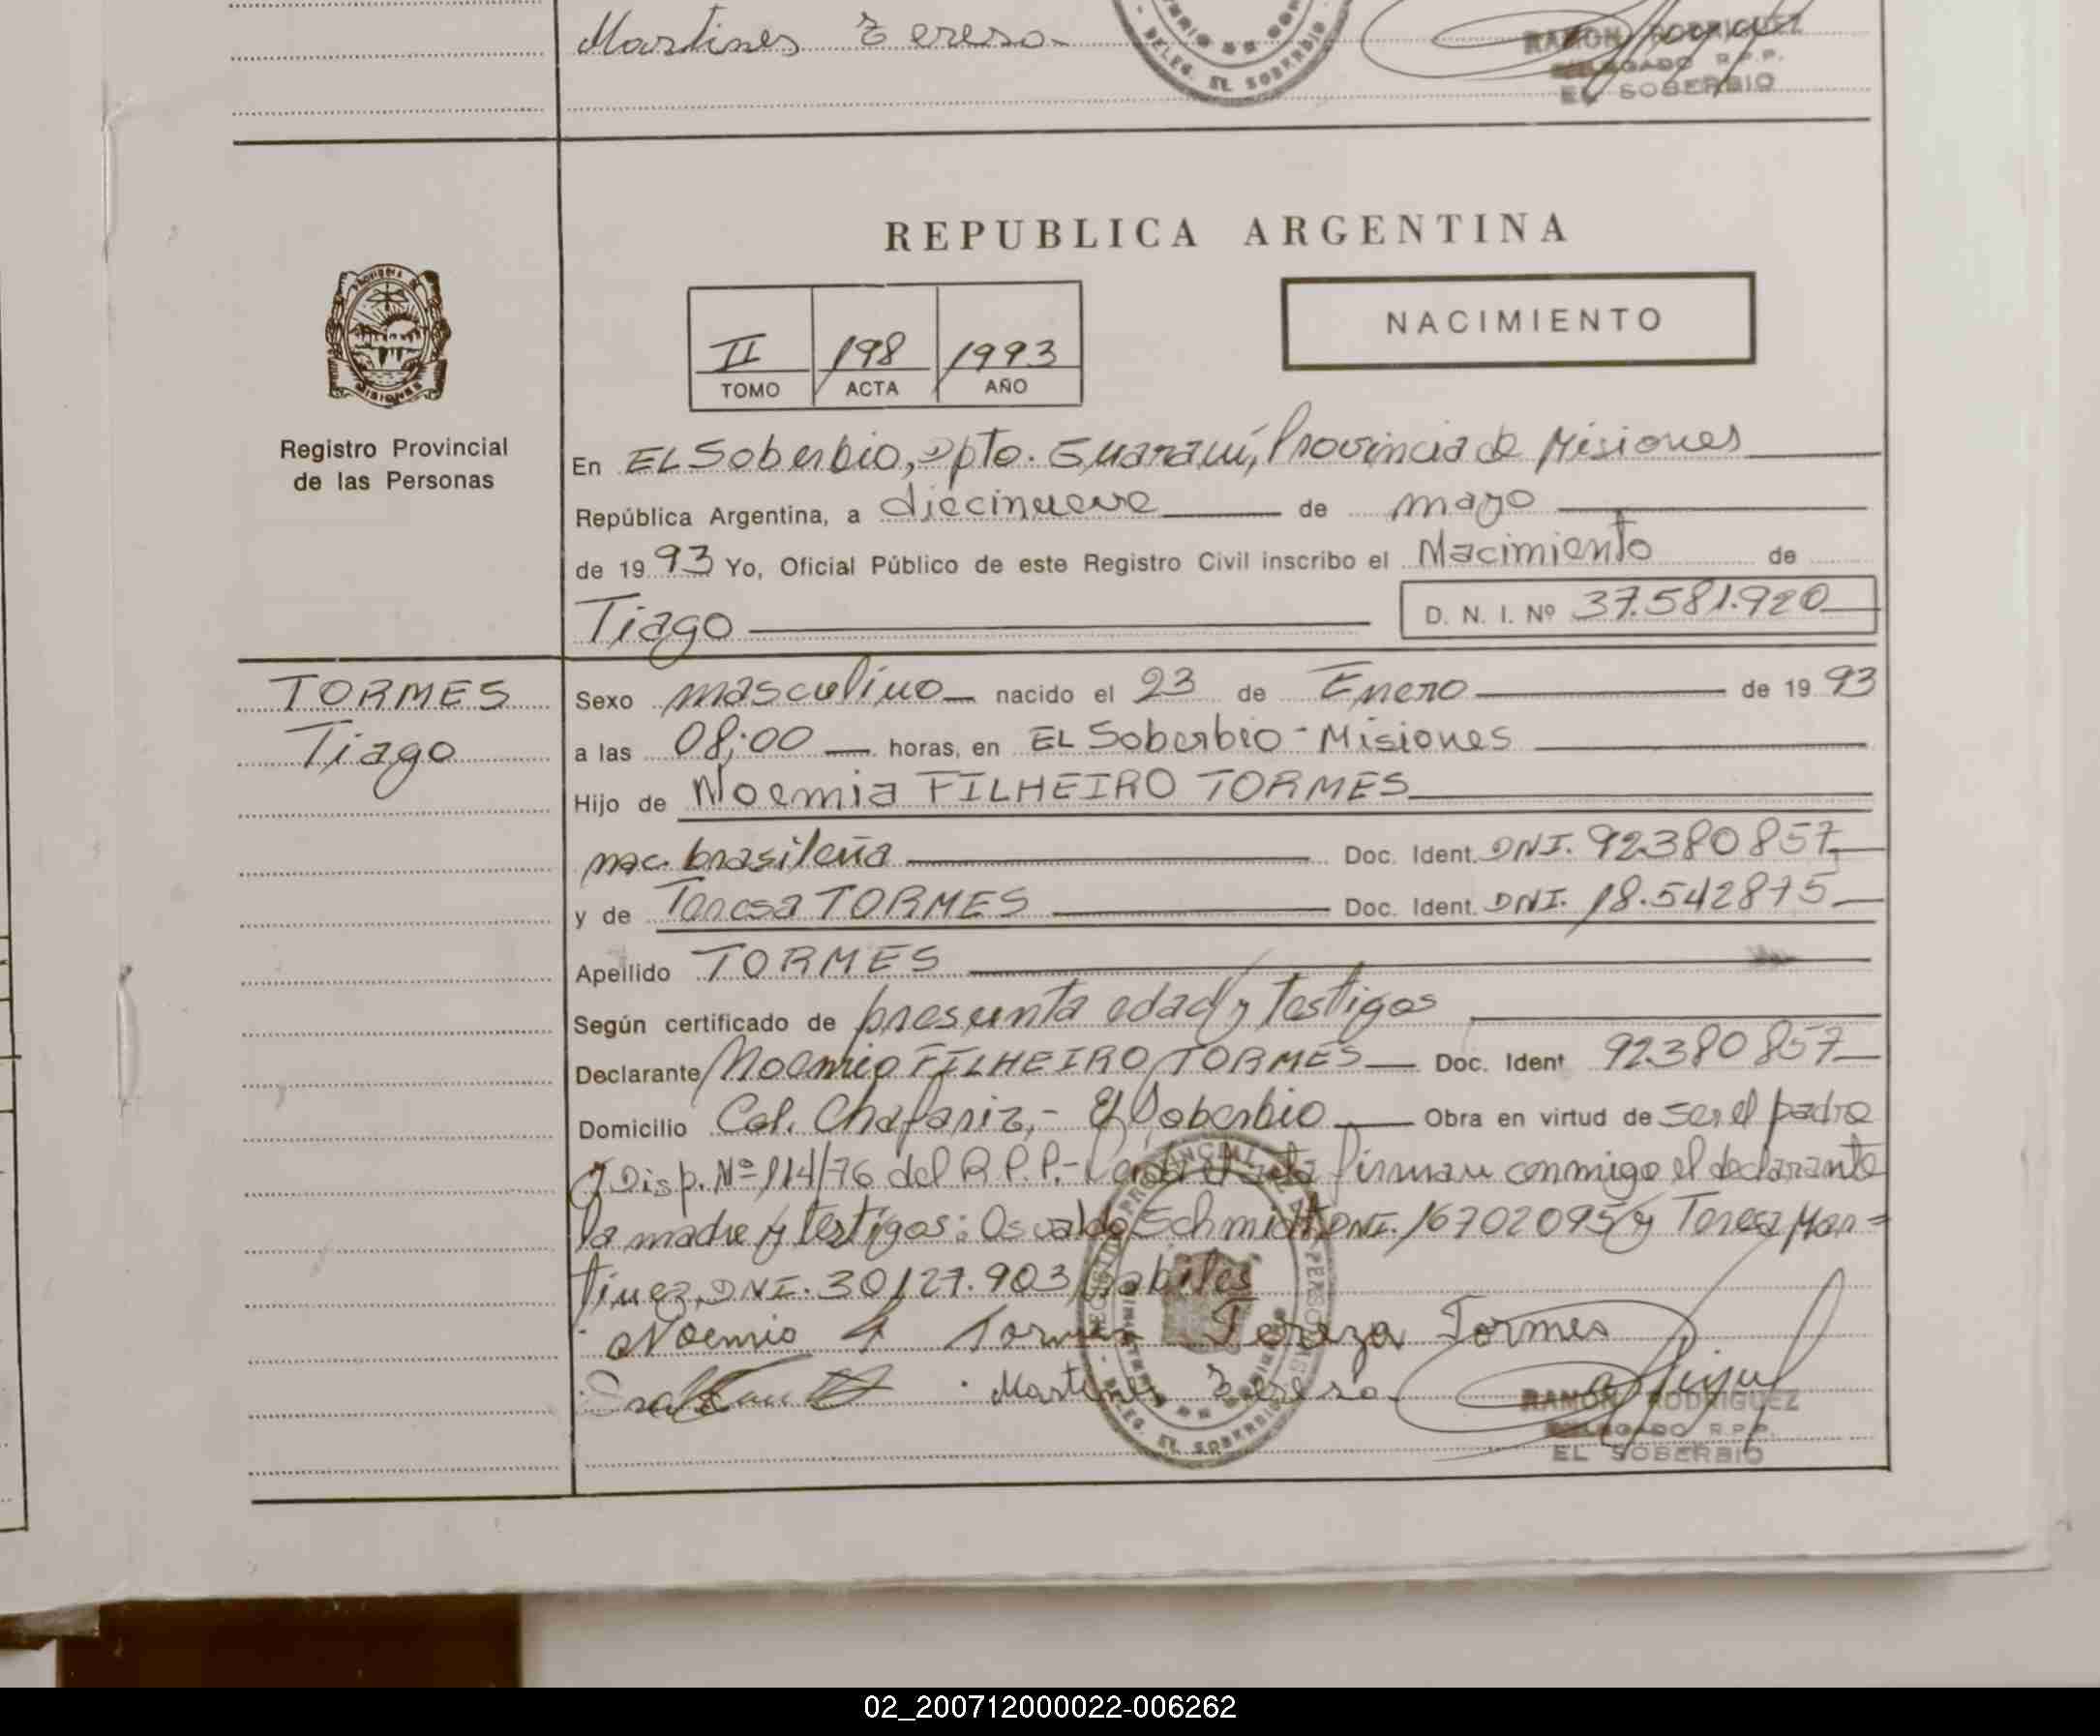 Martines Teresa
DELEG. EL SOBERBIO
RAMON RODRIGUEZ
DELEGADO R.P.P.
EL SOBERBIO
REPUBLICA ARGENTINA
NACIMIENTO
II 198 1993
TOMO ACTA AÑO
MISIONES
Registro Provincial
de las Personas
En EL Soberbio, Dpto. Guaraní, Provincia de Misiones
República Argentina, a diecinueve de mayo
de 1993 Yo, Oficial Público de este Registro Civil inscribo el Nacimiento de
Tiago
D. N. I. Nº 37.581.920
TORMES
Tiago
Sexo masculino nacido el 23 de Enero de 1993
a las 08:00 horas, en EL Soberbio - Misiones
Hijo de Noemia FILHEIRO TORMES
nac. brasileña Doc. Ident. DNI. 92380857
y de Teresa TORMES Doc. Ident. DNI. 18.542875
Apellido TORMES
Según certificado de presunta edad y testigos
Declarante Noemio FILHEIRO TORMES Doc. Ident 92380857
Domicilio Col. Chafariz,- El Soberbio Obra en virtud de ser el padre
y Disp. Nº 114/76 del R.P.P.- Leída el acta firman conmigo el declarante
la madre y testigos: Osvaldo Schmidt DNI. 16702095 y Teresa Mar=
tinez DNI. 30127.903 habiles
Noemio F Tormes Tereza Tormes
Martines Teresa
DELEG. EL SOBERBIO
RAMON RODRIGUEZ
DELEGADO R.P.P.
EL SOBERBIO
02_200712000022-006262